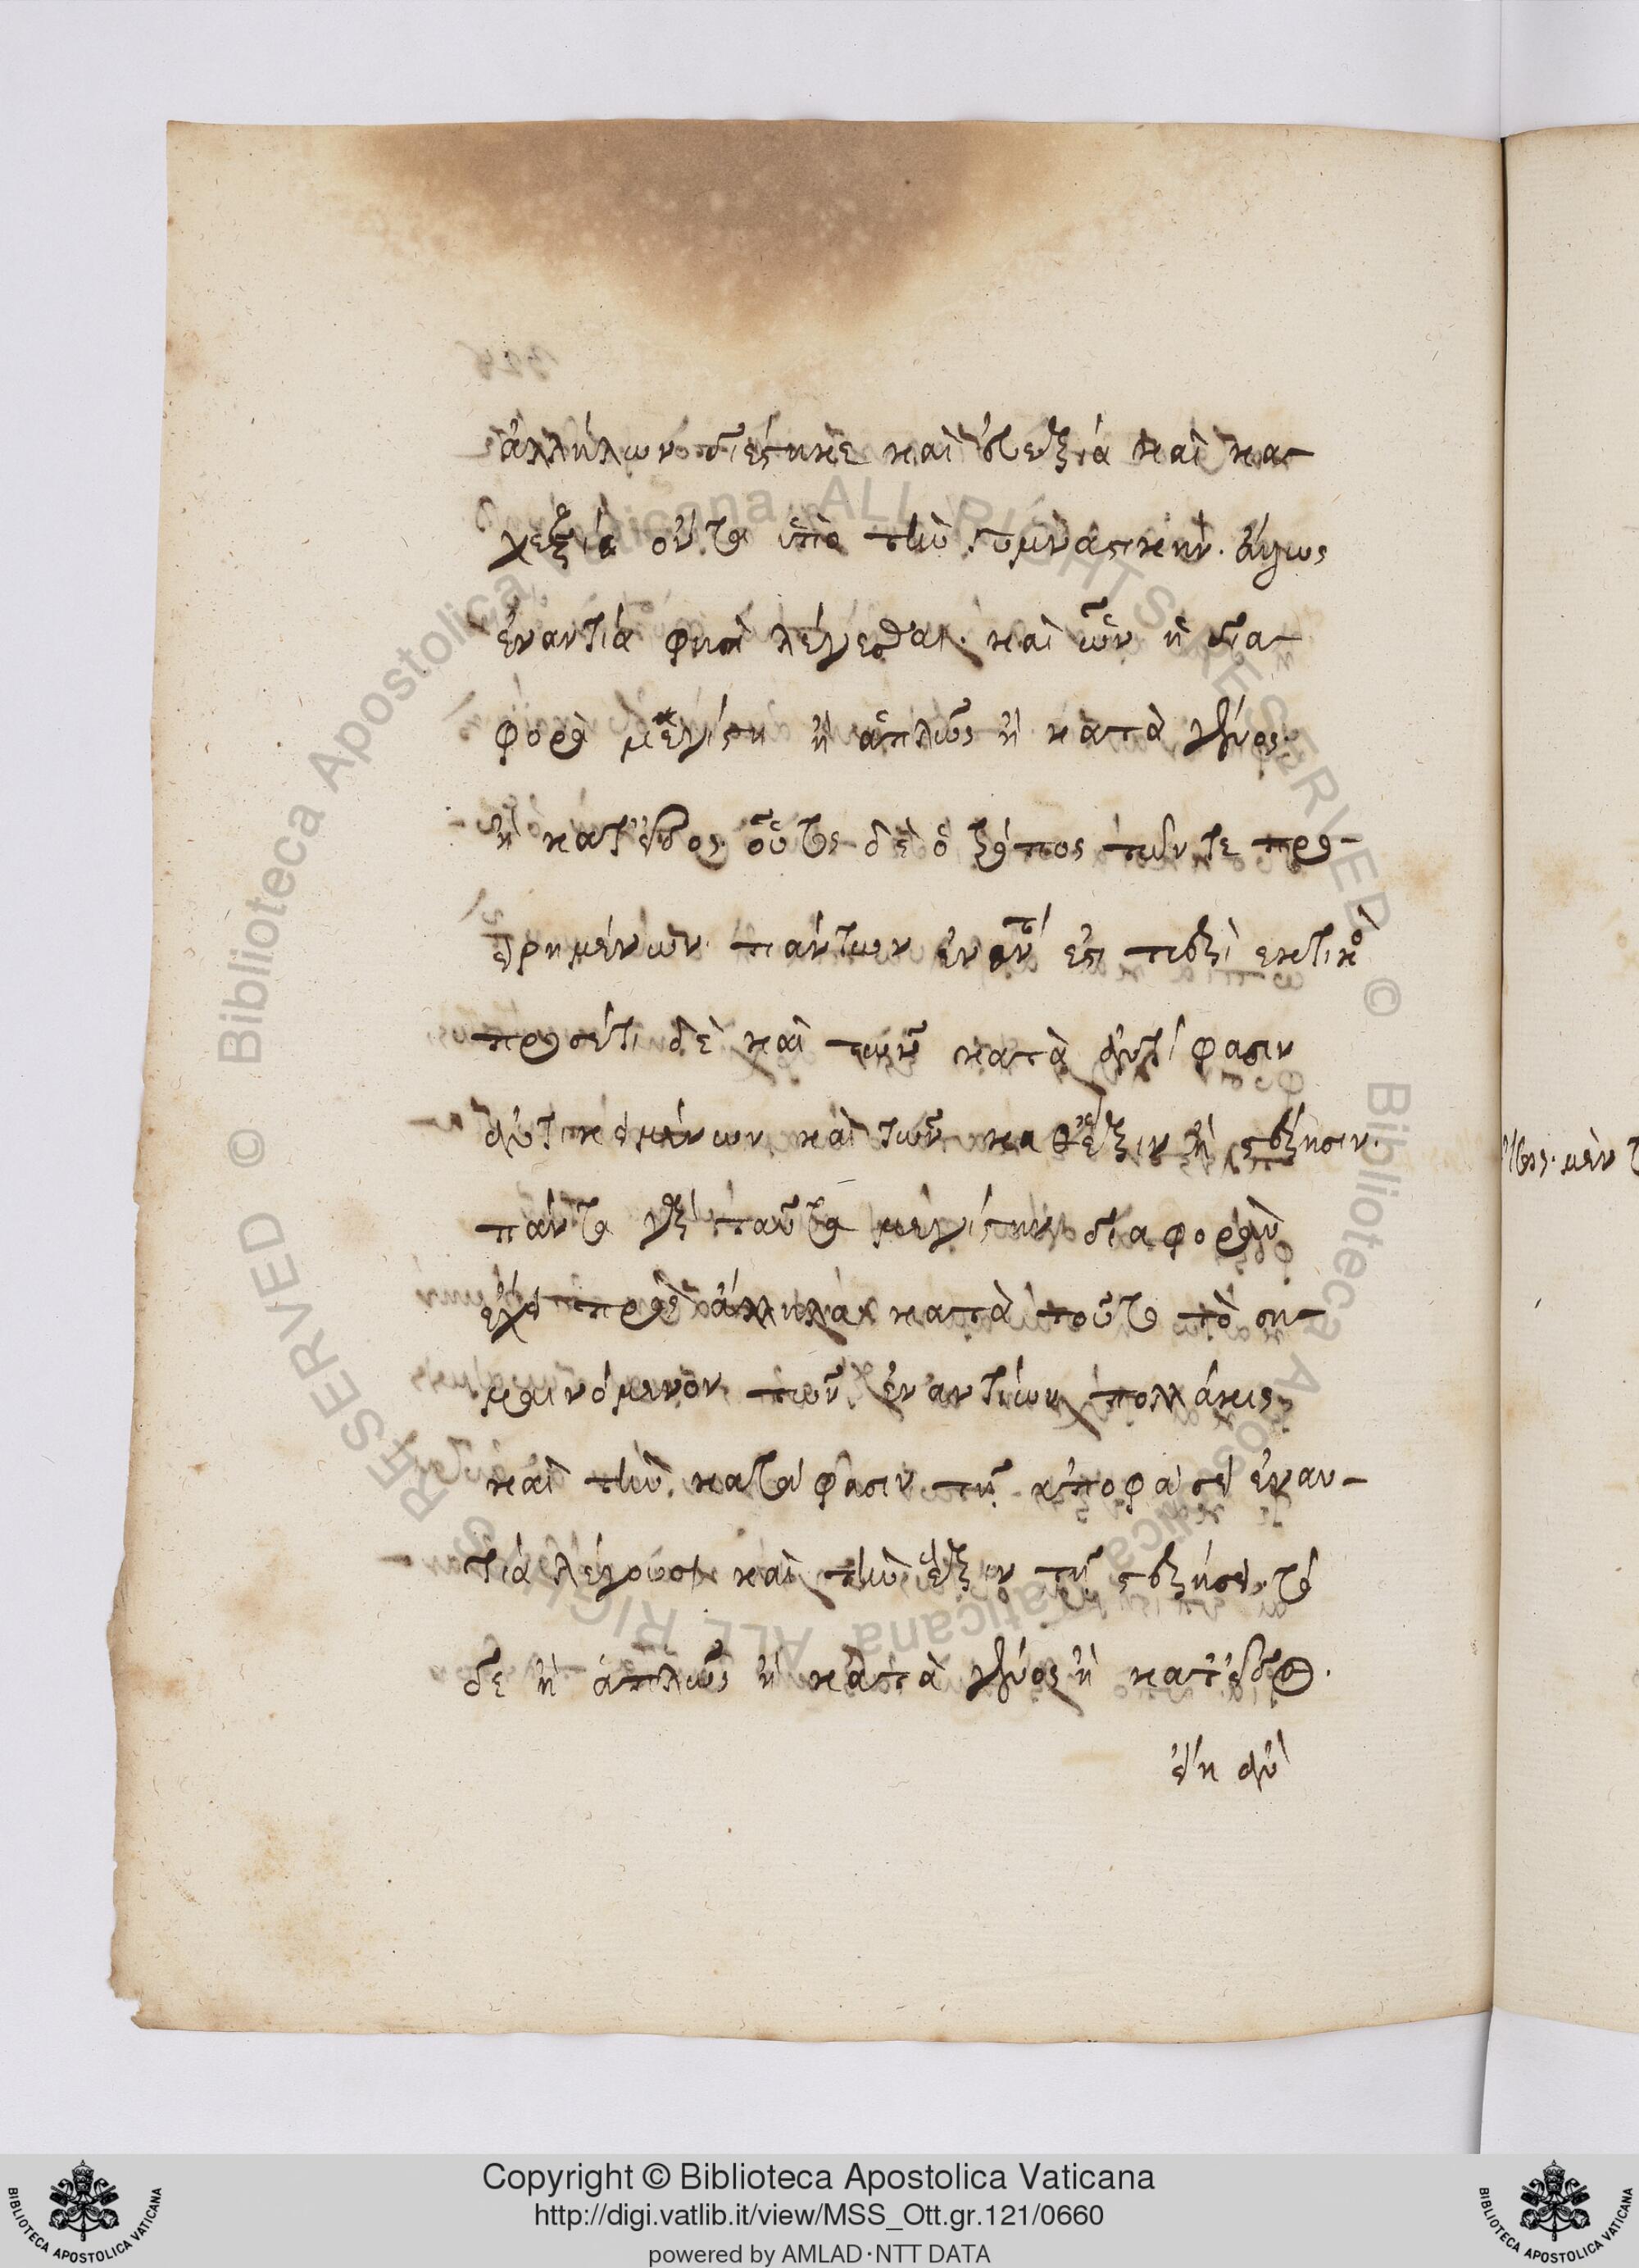 ἀλλήλων διέστηκε καὶ εὐεξία καὶ κα-
χεξία ὄντα ὑπὸ τὴν γυμναστικήν. ἄλλως
ἐναντία φησὶ λέγεσθαι. καὶ ὧν ἡ δια-
φορὰ μεγίστη ἢ ἁπλῶς ἢ κατὰ γένος
ἢ κατ' εἶδος. οὗτος δὲ ὁ τρόπος τῶν τε προ-
ειρημένων πάντων ἐναντί ἐστι περιεκτικὸ
προσέτι δὲ καὶ τῶν κατὰ ἀντίφασιν
ἀντικειμένων καὶ τῶν καθ' ἕξιν ἢ στέρησιν.
πάντα γὰρ ταῦτα μεγίστην διαφορὰν
ἔχει πρὸς ἄλληλα κατὰ τοῦτο τὸ ση-
μαινόμενον τῶν ἐναντίων πολλάκις
καὶ τὴν κατάφασιν τῇ ἀποφάσει ἐναν-
τία λέγουσι καὶ τὴν ἕξιν τῇ στερήσει. τὸ
δὲ ἢ ἁπλῶς ἢ κατὰ γένος ἢ κατ' εἶδος.
εἴη ἂν
μὲν
Copyright © Biblioteca Apostolica Vaticana
http://digi.vatlib.it/view/MSS_Ott.gr.121/0660
powered by AMLAD·NTT DATA
BIBLIOTECA APOSTOLICA VATICANA
BIBLIOTECA APOSTOLICA VATICANA
© Biblioteca Apostolica Vaticana ALL RIGHTS RESERVED
© Biblioteca Apostolica Vaticana ALL RIGHTS RESERVED